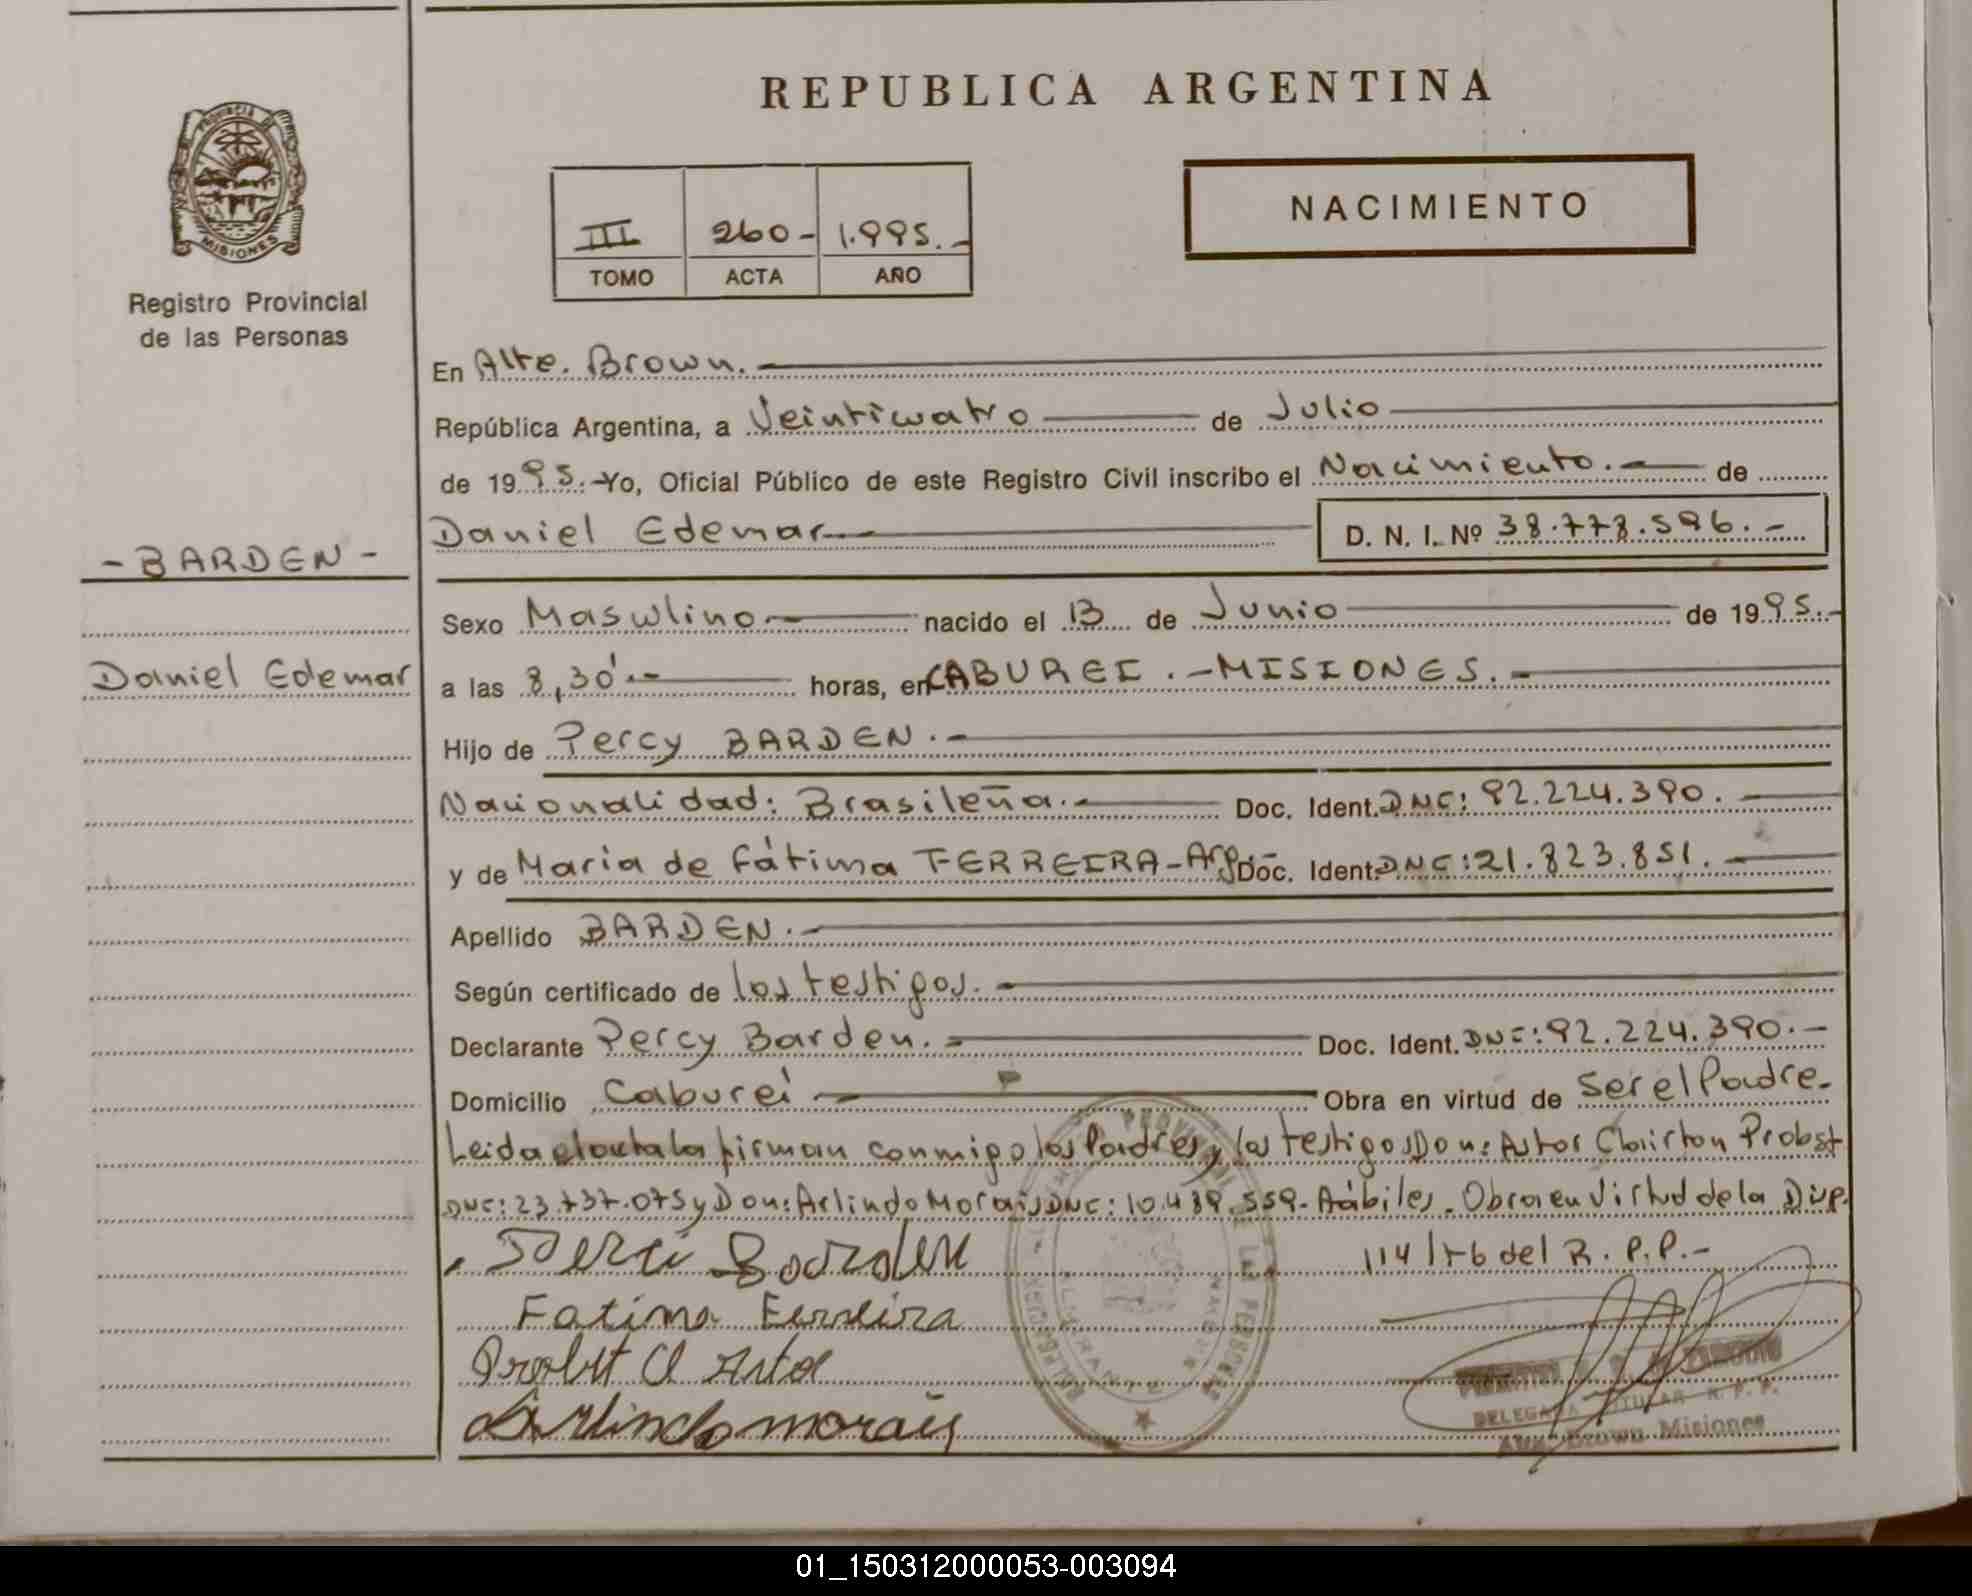 REPUBLICA ARGENTINA
PROVINCIA DE
MISIONES
Registro Provincial
de las Personas
NACIMIENTO
III 260- 1.995.-
TOMO ACTA AÑO
En Alte. Brown.
República Argentina, a Veinticuatro de Julio
de 1995.- Yo, Oficial Público de este Registro Civil inscribo el Nacimiento.- de
Daniel Edemar D. N. I. Nº 38.778.596.-
-BARDEN-
Daniel Edemar
Sexo Masculino nacido el 13 de Junio de 1995.-
a las 8,30'.- horas, en CABUREI.-MISIONES.-
Hijo de Percy BARDEN.-
Nacionalidad: Brasileña.- Doc. Ident. DNC: 92.224.390.-
y de Maria de Fátima FERREIRA-Arg- Doc. Ident. DNC: 21.823.851.-
Apellido BARDEN.-
Según certificado de los testigos.-
Declarante Percy Barden.- Doc. Ident. DNC: 92.224.390.-
Domicilio Cabureí Obra en virtud de Ser el Padre.
Leida el acta la firman conmigo los Padres y los testigos Don: Astor Clairton Probst
DNC: 23.737.075 y Don: Arlindo Morais DNC: 10.489.559.- Aábiles. Obra en Virtud de la Disp.
114/76 del R.P.P.-
Perci Barden
Fatima Ferreira
Probst C Astor
Arlindo morais
DELEGADA TITULAR R. P. P.
Alte. Brown Misiones
01_150312000053-003094